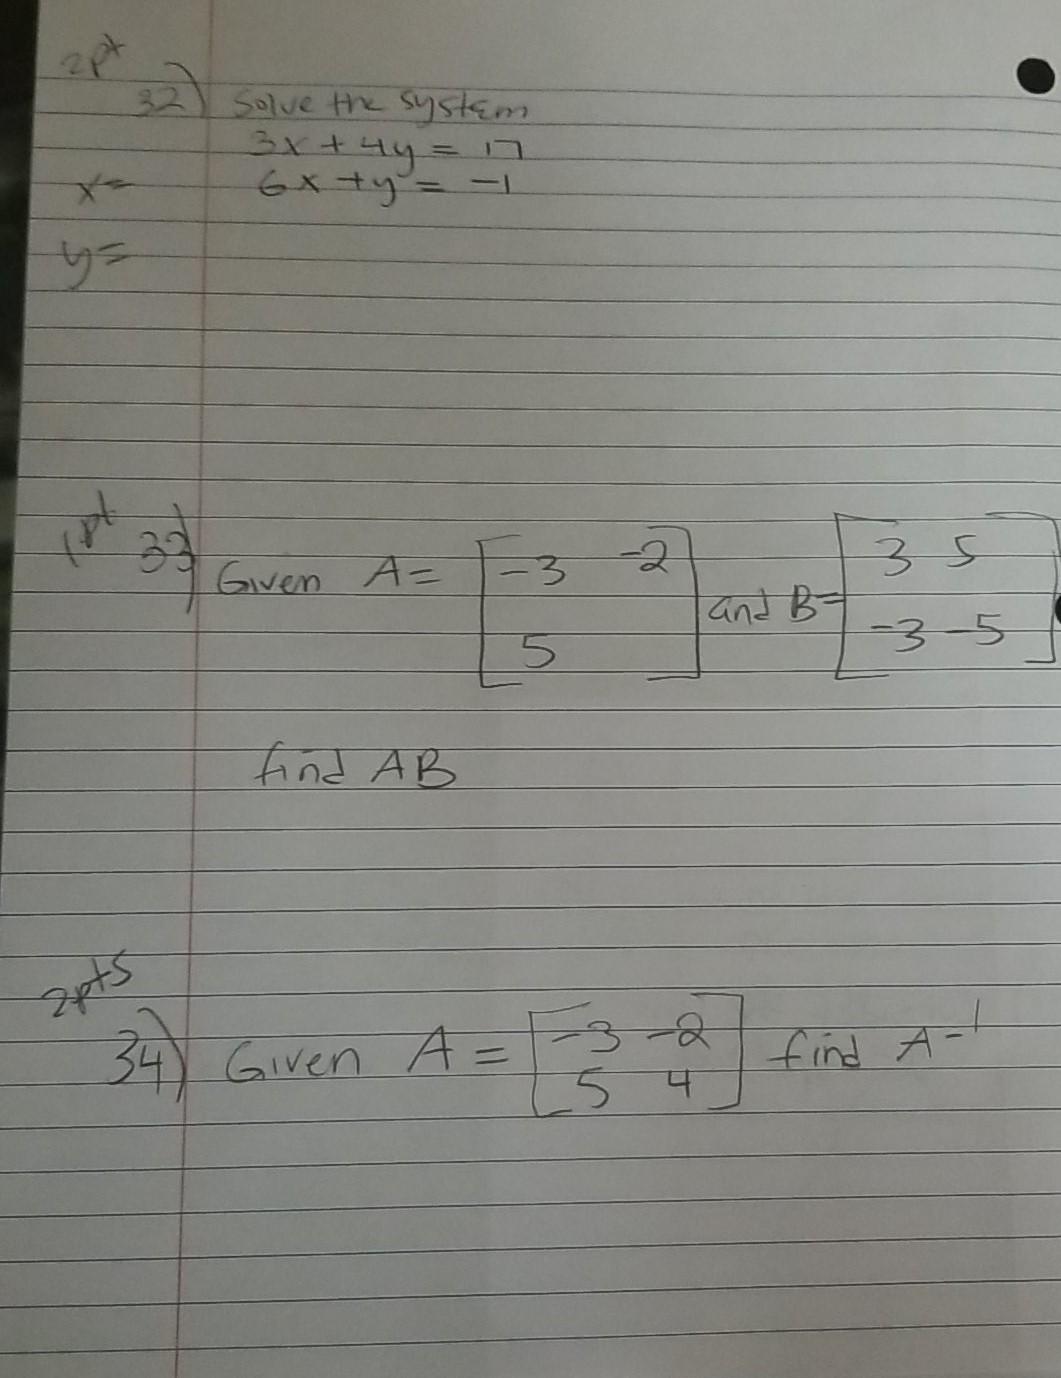 2pt
32) Solve the system
3x + 4y = 17
x= 6x + y = -1
y=
1pt 33) Given A = [-3 -2
5] and B= [3 5
-3 -5]
find AB
2pts
34) Given A = [-3 -2
5 4] find A-1